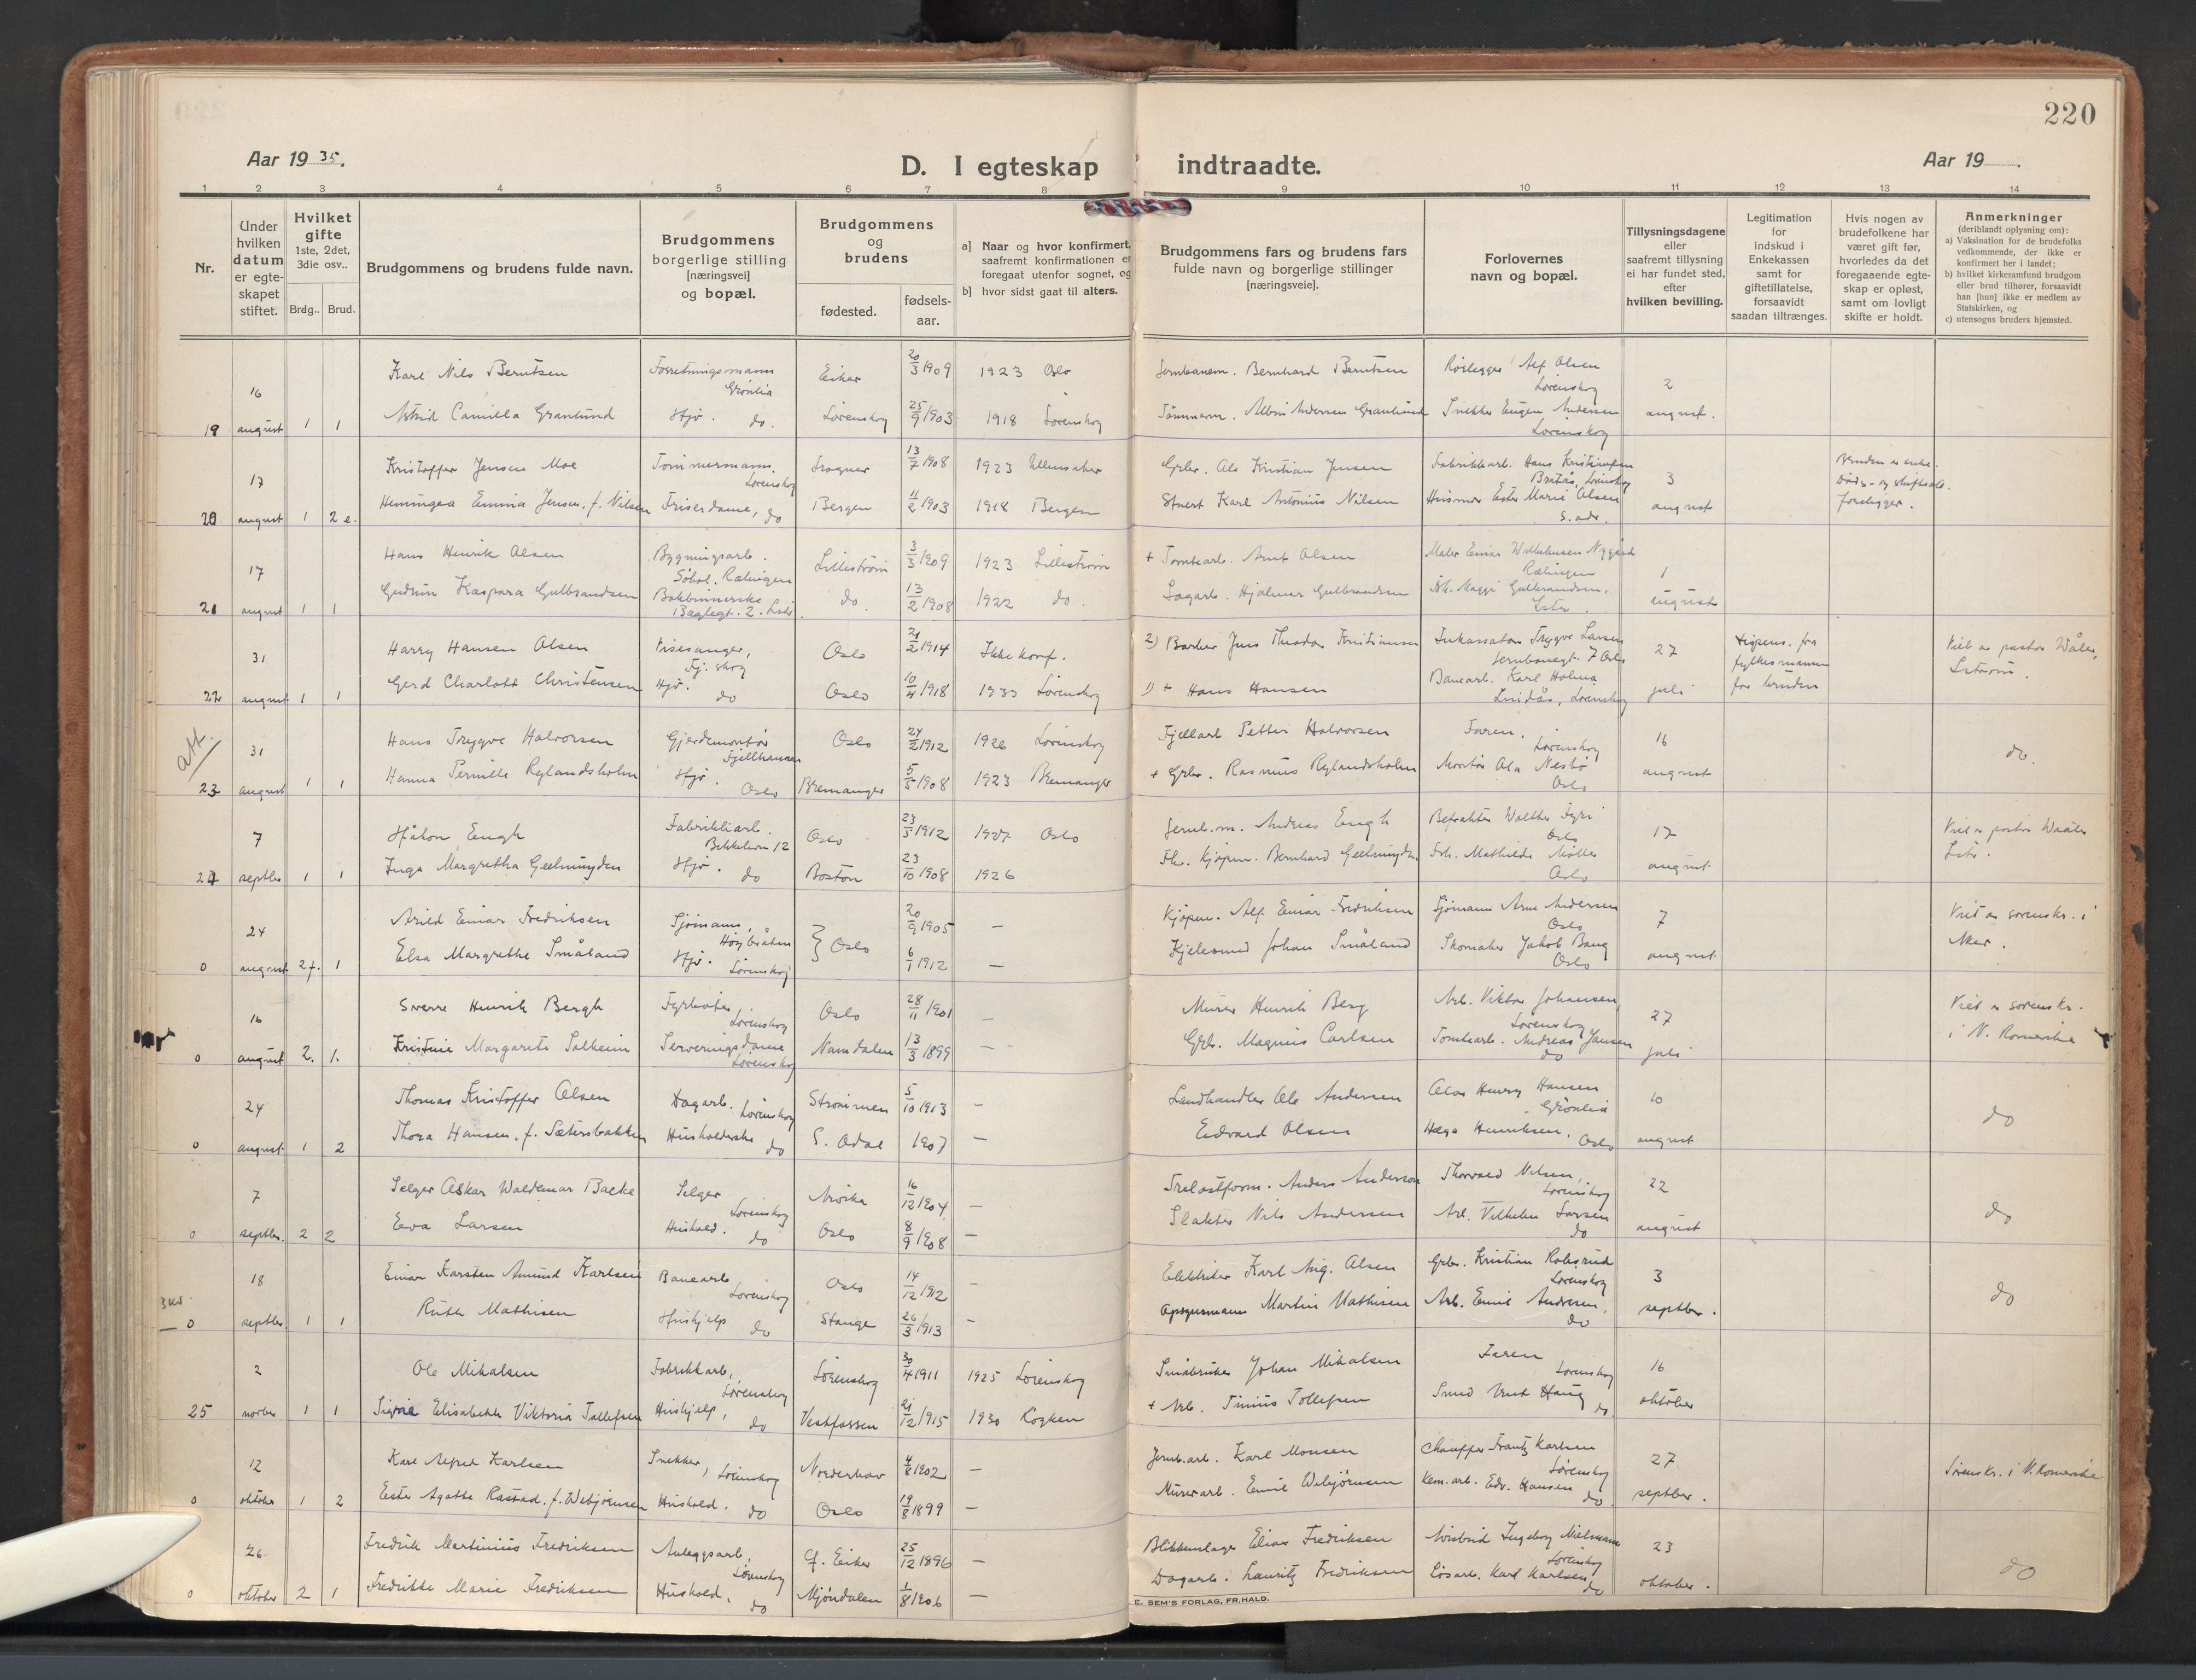 220
Aar 19 35.
D. I egteskap indtraadte.
Aar 19 .
1 2 3 4 5 6 7 8 9 10 11 12 13 14
Nr.
Under hvilken datum er egte- skapet stiftet.
Hvilket gifte 1ste, 2det, 3die osv..
Brdg.. Brud.
Brudgommens og brudens fulde navn.
Brudgommens borgerlige stilling [næringsvei] og bopæl.
Brudgommens og brudens
fødested.
fødsels- aar.
a] Naar og hvor konfirmert, saafremt konfirmationen er foregaat utenfor sognet, og
b] hvor sidst gaat til alters.
Brudgommens fars og brudens fars fulde navn og borgerlige stillinger [næringsveie].
Forlovernes navn og bopæl.
Tillysningsdagene eller saafremt tillysning ei har fundet sted, efter hvilken bevilling.
Legitimation for indskud i Enkekassen samt for giftetillatelse, forsaavidt saadan tiltrænges.
Hvis nogen av brudefolkene har været gift før, hvorledes da det foregaaende egte- skap er opløst, samt om lovligt skifte er holdt.
Anmerkninger (deriblandt oplysning om):
a) Vaksination for de brudefolks vedkommende, der ikke er konfirmert her i landet;
b) hvilket kirkesamfund brudgom eller brud tilhører, forsaavidt han [hun] ikke er medlem av Statskirken, og
c) utensogns bruders hjemsted.
Karl Nils Berntsen Forretningsmann Grönlia Eiker 20/3 1909 1923 Oslo Jernbanem. Bernhard Berntsen Rørlegger Alf Olsen Lørenskog 2
19 16 august 1 1 Astrid Camilla Granlund Hjv. do. Lørenskog 25/9 1903 1918 Lørenskog Tömmerm. Albin Andersen Granlund Snekker Eugen Andersen Lørenskog august.
Kristoffer Jensen Moe Tömmermann. Lørenskog Frogner 13/7 1908 1923 Ullensaker Grbr. Ole Kristian Jensen Fabrikkarb. Hans Kristiansen Bråtås, Lørenskog 3 Bruden er enke. Døds- og skifteatt. foreligger.
20 17 august 1 2 e. Henningea Emma Jensen, f. Nilsen Friserdame, do Bergen 11/2 1903 1918 Bergen Stuert Karl Antonius Nilsen Husmor Ester Marie Olsen s. adr. august
Hans Henrik Olsen Bygningsarb. Lilleström 3/3 1909 1923 Lilleström + Tomtearb. Arnt Olsen Maler Einar Wilhelmsen Nygård Rælingen 1
21 17 august 1 1 Gudrun Kaspara Gulbrandsen Bokbinnerske do. 13/2 1908 1922 do. Sagarb. Hjalmar Gulbrandsen Frk. Maggi Gulbrandsen, Lstr. august
Harry Hansen Olsen Visesanger, Fj. skog Oslo 21/2 1914 Ikke konf. 2) Barber Jens Theodor Kristiansen Inkassator Trygve Larsen Jernbanegt. 7 Oslo 27 fylkesmann for bruden Viet av pastor Wåler, Lström.
22 31 august 1 1 Gerd Charlott Christensen Hjv. do Oslo 10/4 1918 1933 Lørenskog 1) + Hans Hansen Banearb. Karl Holme Lindås, Lørenskog juli
att.
Hans Trygve Halvorsen Gjerdemontør Fjellhammer Oslo 24/2 1912 1926 Lørenskog Fjellarb. Petter Halvorsen Faren, Lørenskog 16 do.
23 31 august 1 1 Hanna Pernille Rylandsholm Hjv. Oslo Bremanger 5/5 1908 1923 Bremanger + Grbr. Rasmus Rylandsholm Montør Ola Nesbø Oslo august
Håkon Engh Fabrikkarb. Oslo 23/5 1912 1927 Oslo Jernb.m. Andreas Engh Befrakter Walther Fyri Oslo 17 Viet av pastor Waaler Lstr.
24 7 septbr 1 1 Inga Margretha Geelmuyden Hjv. do Boston 23/10 1908 1926 Kjøpm. Bernhard Geelmuyden Frk. Mathilde Møller Oslo august
Arild Einar Fredriksen Sjömann, Høybråten Oslo 20/9 1905 — Kjøpm. Alf. Einar Fredriksen Sjömann Arne Andersen Oslo 7 Viet av sorenskr. i Aker.
0 24 august 2 f. 1 Elsa Margrethe Småland Hjv. Lørenskog 6/1 1912 — Kjelesmed Johan Småland Skomaker Jakob Bang Oslo august
Sverre Henrik Bergh Fyrbøter Lørenskog Oslo 28/11 1901 — Murer Henrik Berg Arb. Viktor Johansen, Lørenskog 27 Viet av sorenskr. i N. Romerike
0 16 august 2. 1. Kristine Margarete Solheim Serveringsdame Lørenskog Namdalen 13/3 1899 — Grb. Magnus Carlsen Tomtearb. Andreas Jansen do juli
Thomas Kristoffer Olsen Dagarb. Lørenskog Strömmen 5/10 1913 — Landhandler Ole Andersen Olav Henry Hansen Grönlia 10 do
0 24 august 1 2 Thora Hansen, f. Sætersbakken Husholderske do S. Odal 1907 — Edvard Olsen Helga Henriksen, Oslo august
Selger Oskar Waldemar Backe Selger Lørenskog Arvika 16/12 1904 — Trelastform. Anders Anderson Thorvald Nilsen, Lørenskog 22 do
0 7 septbr. 2 2 Eva Larsen Hushold. do Oslo 8/9 1908 — Slakter Nils Andersen Arb. Vilhelm Larsen do august
Einar Karsten Amund Karlsen Banearb. Lørenskog Oslo 14/12 1912 — Elektriker Karl Aug. Olsen Grbr. Kristian Robsrud Lørenskog 3 do
0 18 septbr. 1 1 Ruth Mathisen Hushjelp do Stange 26/3 1913 — Opsynsmann Martin Mathisen Arb. Emil Andresen, do septbr.
Ole Mikalsen Fabrikkarb., Lørenskog Lørenskog 30/4 1911 1925 Lørenskog Småbruker Johan Mikalsen Faren Lørenskog 16
25 2 novbr 1 1 Signe Elisabeth Viktoria Tollefsen Hushjelp, do Vestfossen 21/12 1915 1930 Røyken + Arb. Tinius Tollefsen Smed Arnt Haug do. oktober
Karl Alfred Karlsen Snekker, Lørenskog Norderhov 4/8 1902 — Jernb.arb. Karl Monsen Chauffør Frantz Karlsen Lørenskog 27 Sorenskr. i N. Romerike
0 12 oktober 1 2 Ester Agathe Rastad, f. Webjörnsen Hushold. do Oslo 19/8 1899 — Murerarb. Emil Webjörnsen Kem.arb. Edv. Hansen do. septber.
Fredrik Martinius Fredriksen Anleggsarb., Lørenskog Eiker 25/12 1896 — Blikkenslager Elias Fredriksen Avisbud Ingeborg Lørenskog 23 do
0 26 oktober 2 1 Fredrikke Marie Fredriksen Hushold. do Mjöndalen 1/8 1906 — Dagarb. Lauritz Fredriksen Løsarb. Karl Karlsen, do oktober.
E. SEM'S FORLAG, FR.HALD.